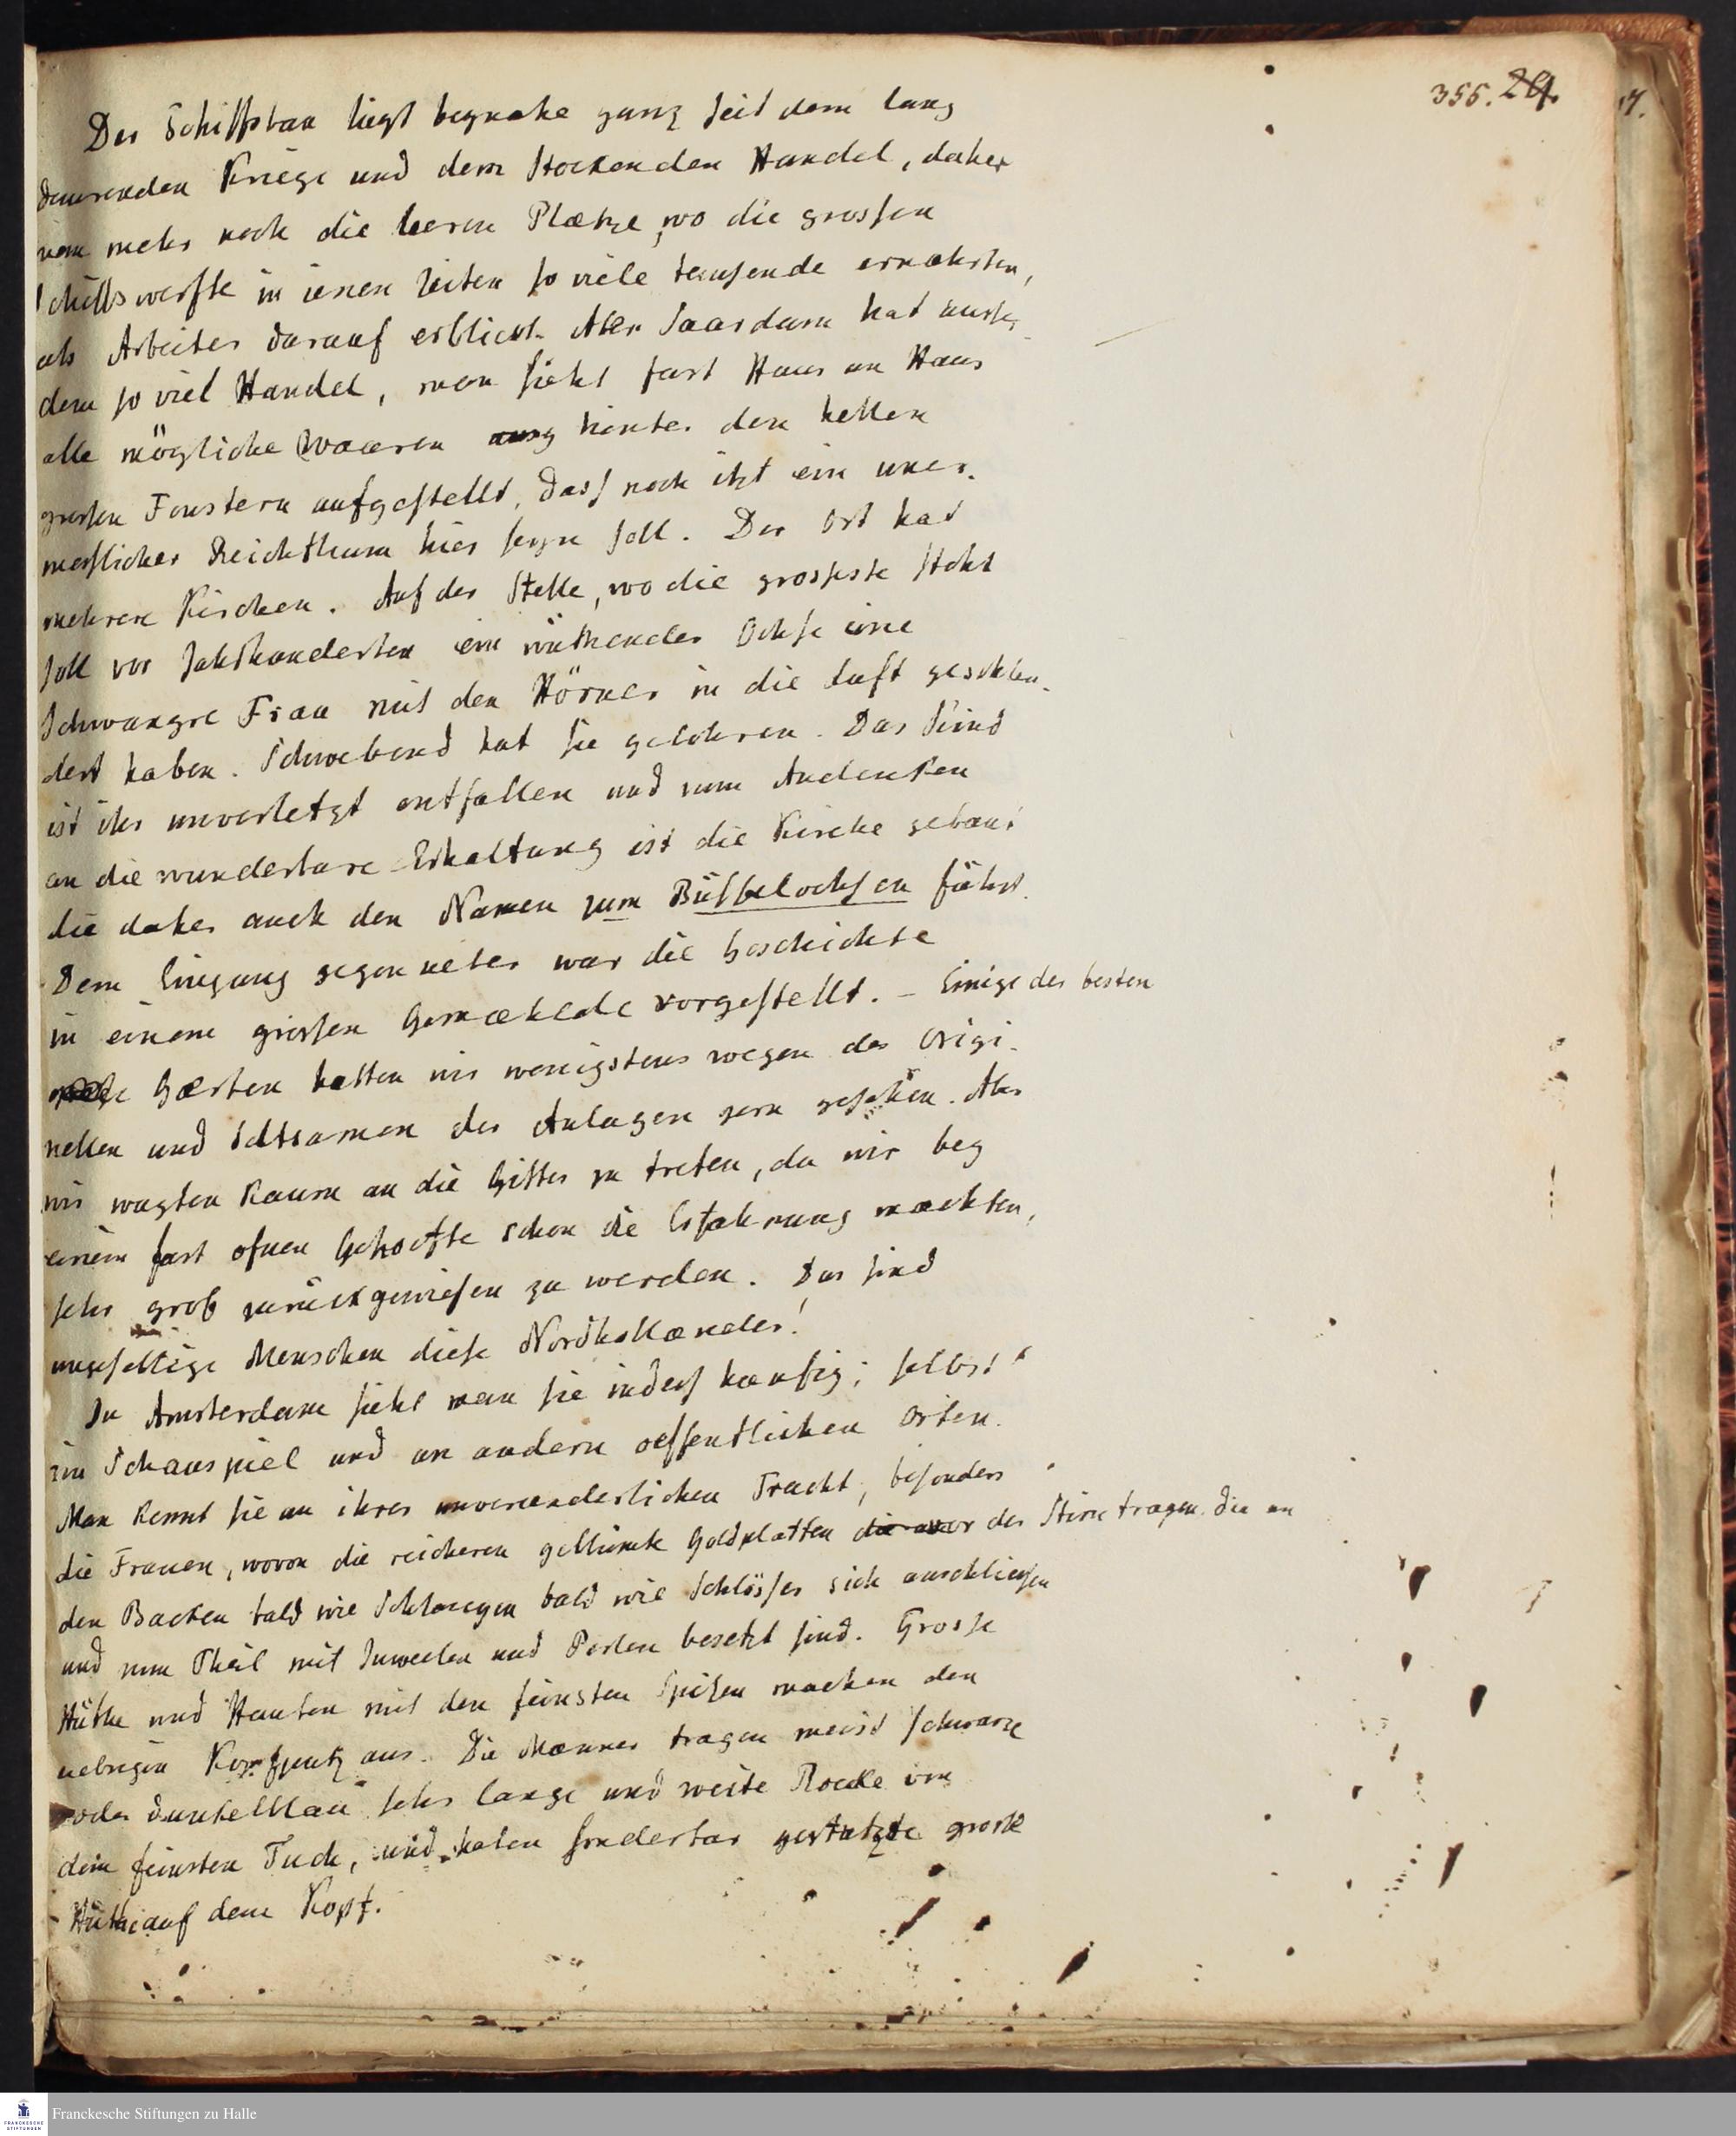 355. 24.
17.
Der Schiffsbau liegt beynahe ganz seit dem lang
daurenden Kriege und dem stockenden Handel, daher
man mehr noch die leeren Plætze, wo die grossen
Schiffswerfte in ienen Zeiten so viele tausende ernæhrten,
als Arbeiter darauf erblickt. Aber Saardam hat ausser
dem so viel Handel, man sieht fast Haus an Haus
alle mögliche Waaren hinter den hellen
grossen Fenstern aufgestellt, dass noch itzt ein uner-
messlicher Reichthum hier seyn soll. Der Ort hat
mehrere Kirchen. Auf der Stelle, wo die grosseste steht
soll vor Jahrhunderten ein wüthender Ochse eine
schwangre Frau mit den Hörner in die Luft geschleu-
dert haben. Schwebend hat sie gebohren. Das Kind
ist ihr unverletzt entfallen und zum Andenken
an die wunderbare Erhaltung ist die Kirche gebaut
die daher auch den Namen zum Büffelochsen führt.
Dem Eingang gegen ueber war die Geschichte
in einem grossen Gemæhlde vorgestellt. – Einige der besten
Gærten hætten wir wenigstens wegen des Origi-
nellen und Seltsamen der Anlagen gern gesehen. Aber
wir wagten kaum an die Gitter zu treten, da wir bey
einem fast ofnen Gehoefte schon die Erfahrung machten,
sehr grob zurückgewiesen zu werden. Das sind
ungefællige Menschen diese Nordhollænder!
In Amsterdam sieht man sie indess hæufig; selbst
im Schauspiel und an andern oeffentlichen Orten.
Man kennt sie an ihrer unverænderlichen Tracht, besonders
die Frauen, wovon die reicheren geblümte Goldplatten die vor der Stirn tragen die an
den Backen bald wie Schlangen bald wie Schlösser sich anschliessen
und zum Theil mit Juweelen und Perlen besetzt sind. Grosse
Hüthe und Hauben mit den feinsten Spitzen machen den
uebrigen Kopfputz aus. Die Mænner tragen meist schwarze
oder dunkelblau sehr lange und weite Roecke von
dem feinsten Tuch, und haben sonderbar gestutzte grosse
Hüthe auf dem Kopf.
FRANCKESCHE
STIFTUNGEN
Franckesche Stiftungen zu Halle